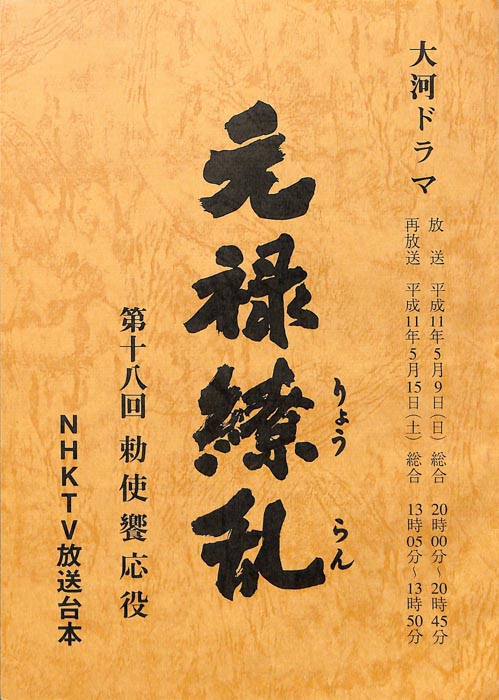 大河ドラマ
放送 平成11年5月9日(日) 総合 20時00分~20時45分
再放送 平成11年5月15日(土) 総合 13時05分~13時50分
元禄繚乱
りょうらん
第十八回 勅使饗応役
NHKTV放送台本